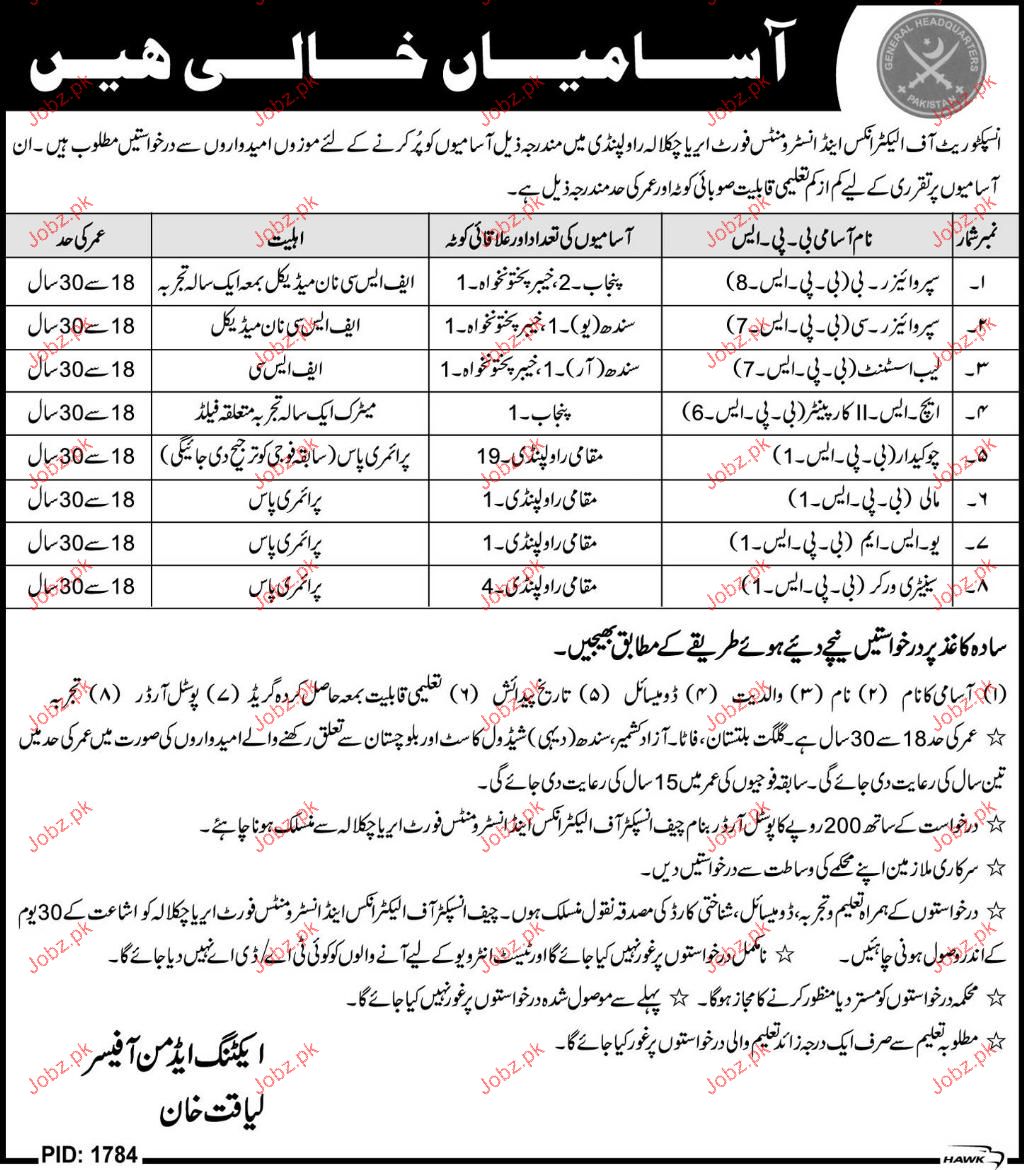 آسامیاں خالی ہیں
GENERAL HEADQUARTERS
PAKISTAN
انسپکٹوریٹ آف الیکٹرانکس اینڈ انسٹرومنٹس فورٹ ایریا چکلالہ راولپنڈی میں مندرجہ ذیل آسامیوں کو پُر کرنے کے لئے موزوں امیدواروں سے درخواستیں مطلوب ہیں۔ ان
آسامیوں پر تقرری کے لیے کم از کم تعلیمی قابلیت صوبائی کوٹہ اور عمر کی حد مندرجہ ذیل ہے۔
نمبر شمار نام آسامی بی۔پی۔ایس آسامیوں کی تعداد اور علاقائی کوٹہ اہلیت عمر کی حد
۱۔ سپروائیزر۔بی (بی۔پی۔ایس۔8) پنجاب۔2، خیبر پختونخواہ۔1 ایف ایس سی نان میڈیکل بمعہ ایک سالہ تجربہ 18 سے 30 سال
۲۔ سپروائیزر۔سی (بی۔پی۔ایس۔7) سندھ (یو)۔1، خیبر پختونخواہ۔1 ایف ایس سی نان میڈیکل 18 سے 30 سال
۳۔ لیب اسسٹنٹ (بی۔پی۔ایس۔7) سندھ (آر)۔1، خیبر پختونخواہ۔1 ایف ایس سی 18 سے 30 سال
۴۔ ایچ۔ایس۔II کارپینٹر (بی۔پی۔ایس۔6) پنجاب۔1 میٹرک ایک سالہ تجربہ متعلقہ فیلڈ 18 سے 30 سال
۵۔ چوکیدار (بی۔پی۔ایس۔1) مقامی راولپنڈی۔19 پرائمری پاس (سابقہ فوجی کو ترجیح دی جائیگی) 18 سے 30 سال
۶۔ مالی (بی۔پی۔ایس۔1) مقامی راولپنڈی۔1 پرائمری پاس 18 سے 30 سال
۷۔ یو۔ایس۔ایم (بی۔پی۔ایس۔1) مقامی راولپنڈی۔1 پرائمری پاس 18 سے 30 سال
۸۔ سینیٹری ورکر (بی۔پی۔ایس۔1) مقامی راولپنڈی۔4 پرائمری پاس 18 سے 30 سال
سادہ کاغذ پر درخواستیں نیچے دئیے ہوئے طریقے کے مطابق بھیجیں۔
(۱) آسامی کا نام (۲) نام (۳) والدیت (۴) ڈومیسائل (۵) تاریخ پیدائش (۶) تعلیمی قابلیت بمعہ حاصل کردہ گریڈ (۷) پوسٹل آرڈر (۸) تجربہ
☆ عمر کی حد 18 سے 30 سال ہے۔ گلگت بلتستان، فاٹا۔ آزاد کشمیر، سندھ (دیہی) شیڈول کاسٹ اور بلوچستان سے تعلق رکھنے والے امیدواروں کی صورت میں عمر کی حد میں
تین سال کی رعایت دی جائے گی۔ سابقہ فوجیوں کی عمر میں 15 سال کی رعایت دی جائے گی۔
☆ درخواست کے ساتھ 200 روپے کا پوسٹل آرڈر بنام چیف انسپکٹر آف الیکٹرانکس اینڈ انسٹرومنٹس فورٹ ایریا چکلالہ سے منسلک ہونا چاہئے۔
☆ سرکاری ملازمین اپنے محکمے کی وساطت سے درخواستیں دیں۔
☆ درخواستوں کے ہمراہ تعلیم و تجربہ، ڈومیسائل، شناختی کارڈ کی مصدقہ نقول منسلک ہوں۔ چیف انسپکٹر آف الیکٹرانکس اینڈ انسٹرومنٹس فورٹ ایریا چکلالہ کو اشاعت کے 30 یوم
کے اندر وصول ہونی چاہئیں۔ ☆ نامکمل درخواستوں پر غور نہیں کیا جائے گا اور ٹیسٹ انٹرویو کیلئے آنے والوں کو کوئی ٹی اے/ڈی اے نہیں دیا جائے گا۔
☆ محکمہ درخواستوں کو مسترد یا منظور کرنے کا مجاز ہوگا۔ ☆ پہلے سے موصول شدہ درخواستوں پر غور نہیں کیا جائے گا۔
☆ مطلوبہ تعلیم سے صرف ایک درجہ زائد تعلیم والی درخواستوں پر غور کیا جائے گا۔
ایکٹنگ ایڈمن آفیسر
لیاقت خان
PID: 1784
HAWK
Jobz.pk